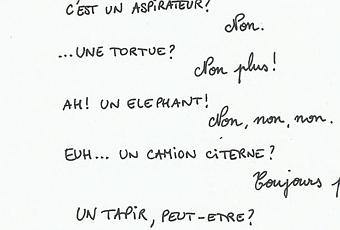 C'EST UN ASPIRATEUR?
Non.
...UNE TORTUE?
Non plus!
AH! UN ELEPHANT!
Non, non, non.
EUH... UN CAMION CITERNE?
Toujours
UN TAPIR, PEUT-ETRE?